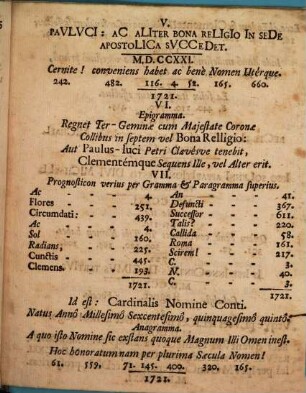 V.
PaVLVCI: aC aLIter bona reLIgIo In seDe
apostoLICa sVCCeDet.
M.D.CCXXI.
Cernite! conveniens habet ac benè Nomen Utérque.
242. 482. 116. 4. 52. 165. 660.
1721.
VI.
Epigramma.
Regnet Ter-Geminæ cum Majestate Coronæ
Collibus in septem vel Bona Relligio:
Aut Paulus-luci Petri Clavésve tenebit,
Clementémque Sequens ille, vel Alter erit.
VII.
Prognosticon verius per Gramma & Paragramma superius.
Ac - - 4. An - - 41.
Flores - - 251. Defuncti - - 367.
Circumdati: - - 439. Successor - - 611.
Ac - - 4. Talis? - - 220.
Sol - - 160. Callida - - 58.
Radians; - - 225. Roma - - 161.
Cunctis - - 445. Scirem! - - 217.
Clemens. - - 193. C. - - 3.
N. - - 40.
1721. C. - - 3.
1721.
Id est: Cardinalis Nomine Conti.
Natus Annô Millesimô Sexcentesimô, quinquagesimô quintô.
Anagramma.
A quo isto Nomine sic exstans quoque Magnum Illi Omen inest.
Hoc honoratum nam per plurima Sæcula Nomen!
61. 559. 71. 145. 400. 320. 165.
1721.